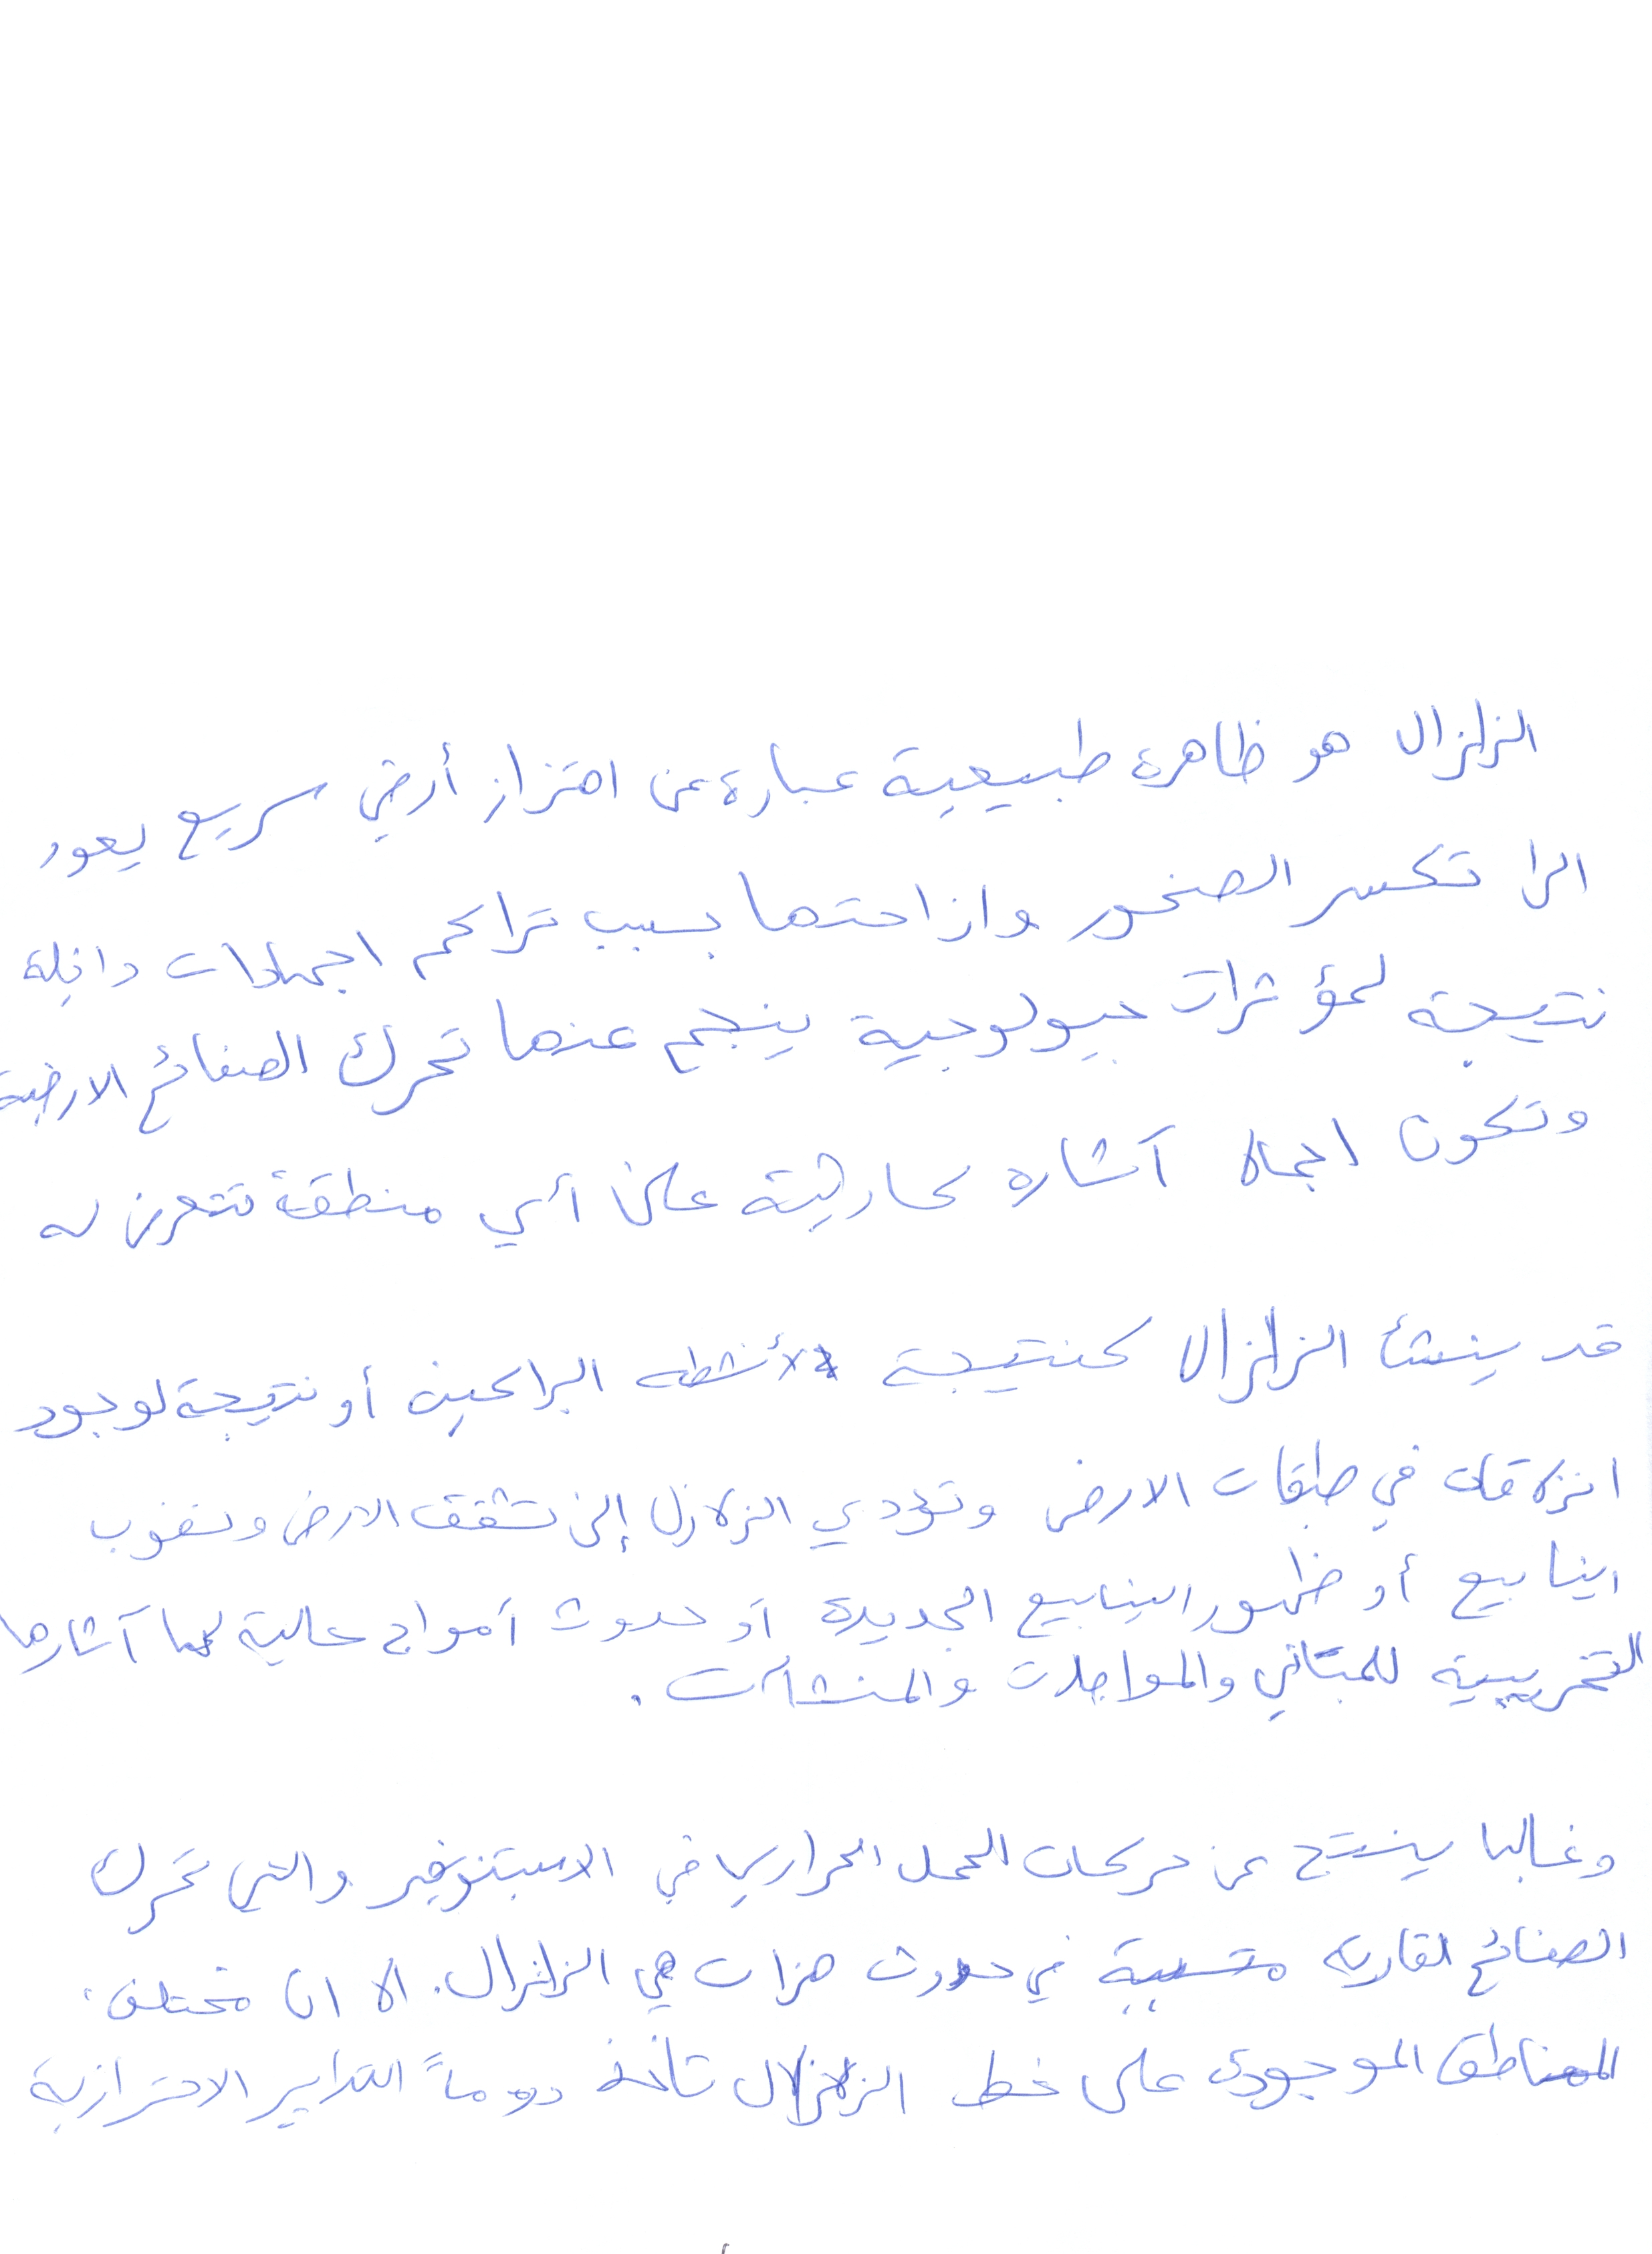 الزلزال هو ظاهرة طبيعية عبارة عن اهتزاز أرضي سريع يعود
الى تكسر الصخور وازاحتها بسبب تراكم اجهادات داخلة
نتيجة لمؤثرات جيولوجية ينجم عنها تحرك الصفائح الارضية
وتكون آثاره كارثية على أي منطقة تتعرض له
قد ينشأ الزلزال كنتيجة لأنشطة البراكين أو نتيجة لوجود
انزلاقات في طبقات الارض وتؤدي الزلازل إلى تشقق الارض ونضوب
الينابيع أو ظهور الينابيع الجديدة أو حدوث أمواج عالية لها آثارها
التخريبية للمباني والمواصلات والمنشآت.
وغالبا ينتج عن حركات الحمل الحراري في والتي تحرك
الصفائح القارية متسببة في حدوث هزات هي الزلزال. الا ان مختلف
المناطق الموجودة على خط الزلازل تأخذ دوماً التدابير الاحترازية